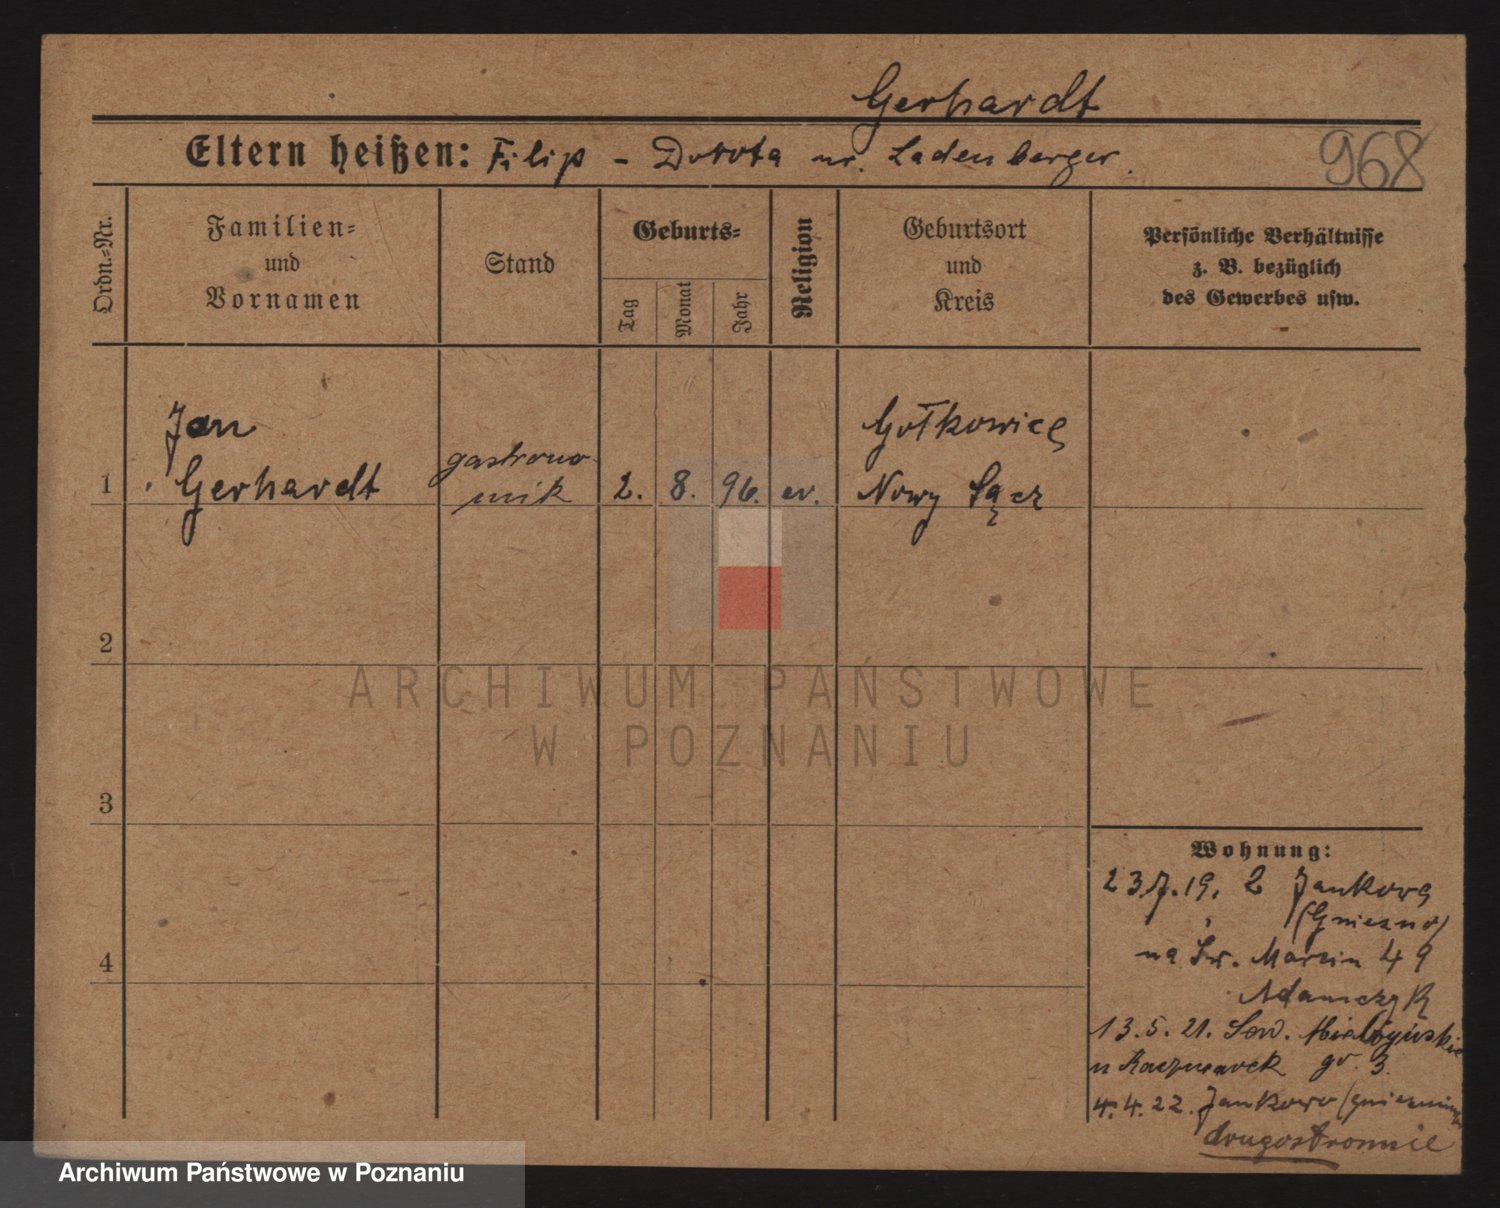 Gerhardt
Eltern heißen: Filip - Dorota ur. Ladenberger.
968
Ordn.-Nr.
Familien-
und
Vornamen
Stand
Geburts-
Tag
Monat
Jahr
Religion
Geburtsort
und
Kreis
Persönliche Verhältnisse
z. B. bezüglich
des Gewerbes usw.
1
Jan
Gerhardt
gastrono-
mik
2. 8. 96. ev.
Gołkowice
Nowy Sącz
2
3
4
Wohnung:
23.7.19. z Jankowa
(Gniezno)
na Św. Marcin 49
Adamczyk
13.5.21. Sew. Mielżyńskie
u Kaczmarek gr. 3.
4.4.22. Jankowo
drugostronnie
ARCHIWUM PAŃSTWOWE
W POZNANIU
Archiwum Państwowe w Poznaniu